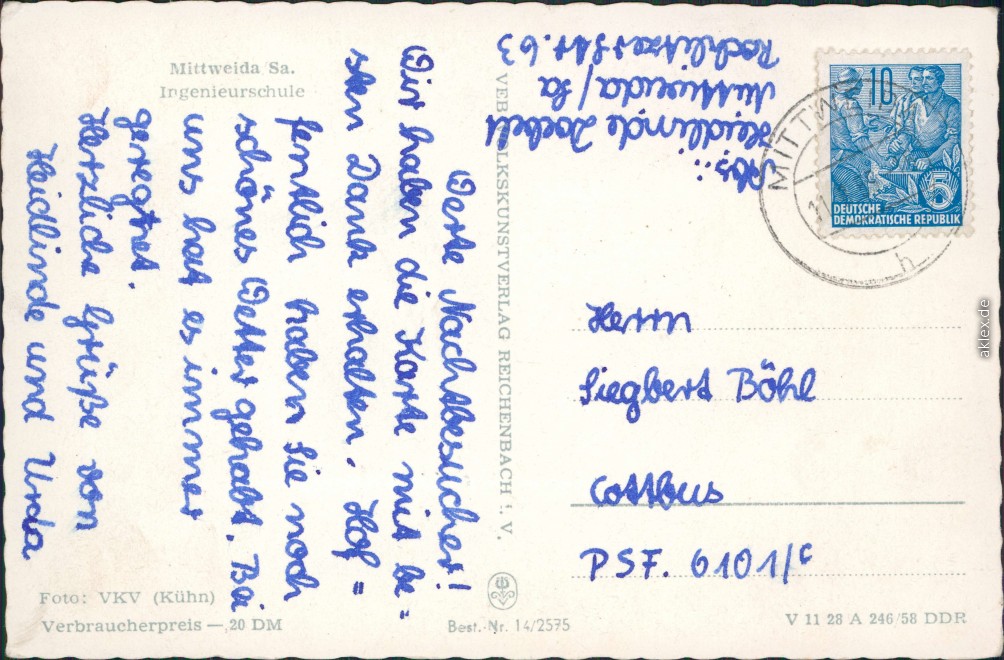 Mittweida Sa.
Ingenieurschule
Werte Nachtbesucher!
Wir haben die Karte mit be=
sten Dank erhalten. Hof=
fentlich haben Sie noch
schönes Wetter gehabt. Bei
uns hat es immer
geregnet.
Herzliche Grüße von
Heidlinde und Urda
Foto: VKV (Kühn)
Verbraucherpreis —,20 DM
VEB VOLKSKUNSTVERLAG REICHENBACH i. V.
Best.-Nr. 14/2575
Abs.:
Heidlinde
Mittweida/Sa
Rochlitzer Str. 63
MITTW
h
10
5
DEUTSCHE
DEMOKRATISCHE REPUBLIK
Herrn
Siegbert Böhl
Cottbus
PSF. 6101/c
V 11 28 A 246/58 DDR
aklex.de